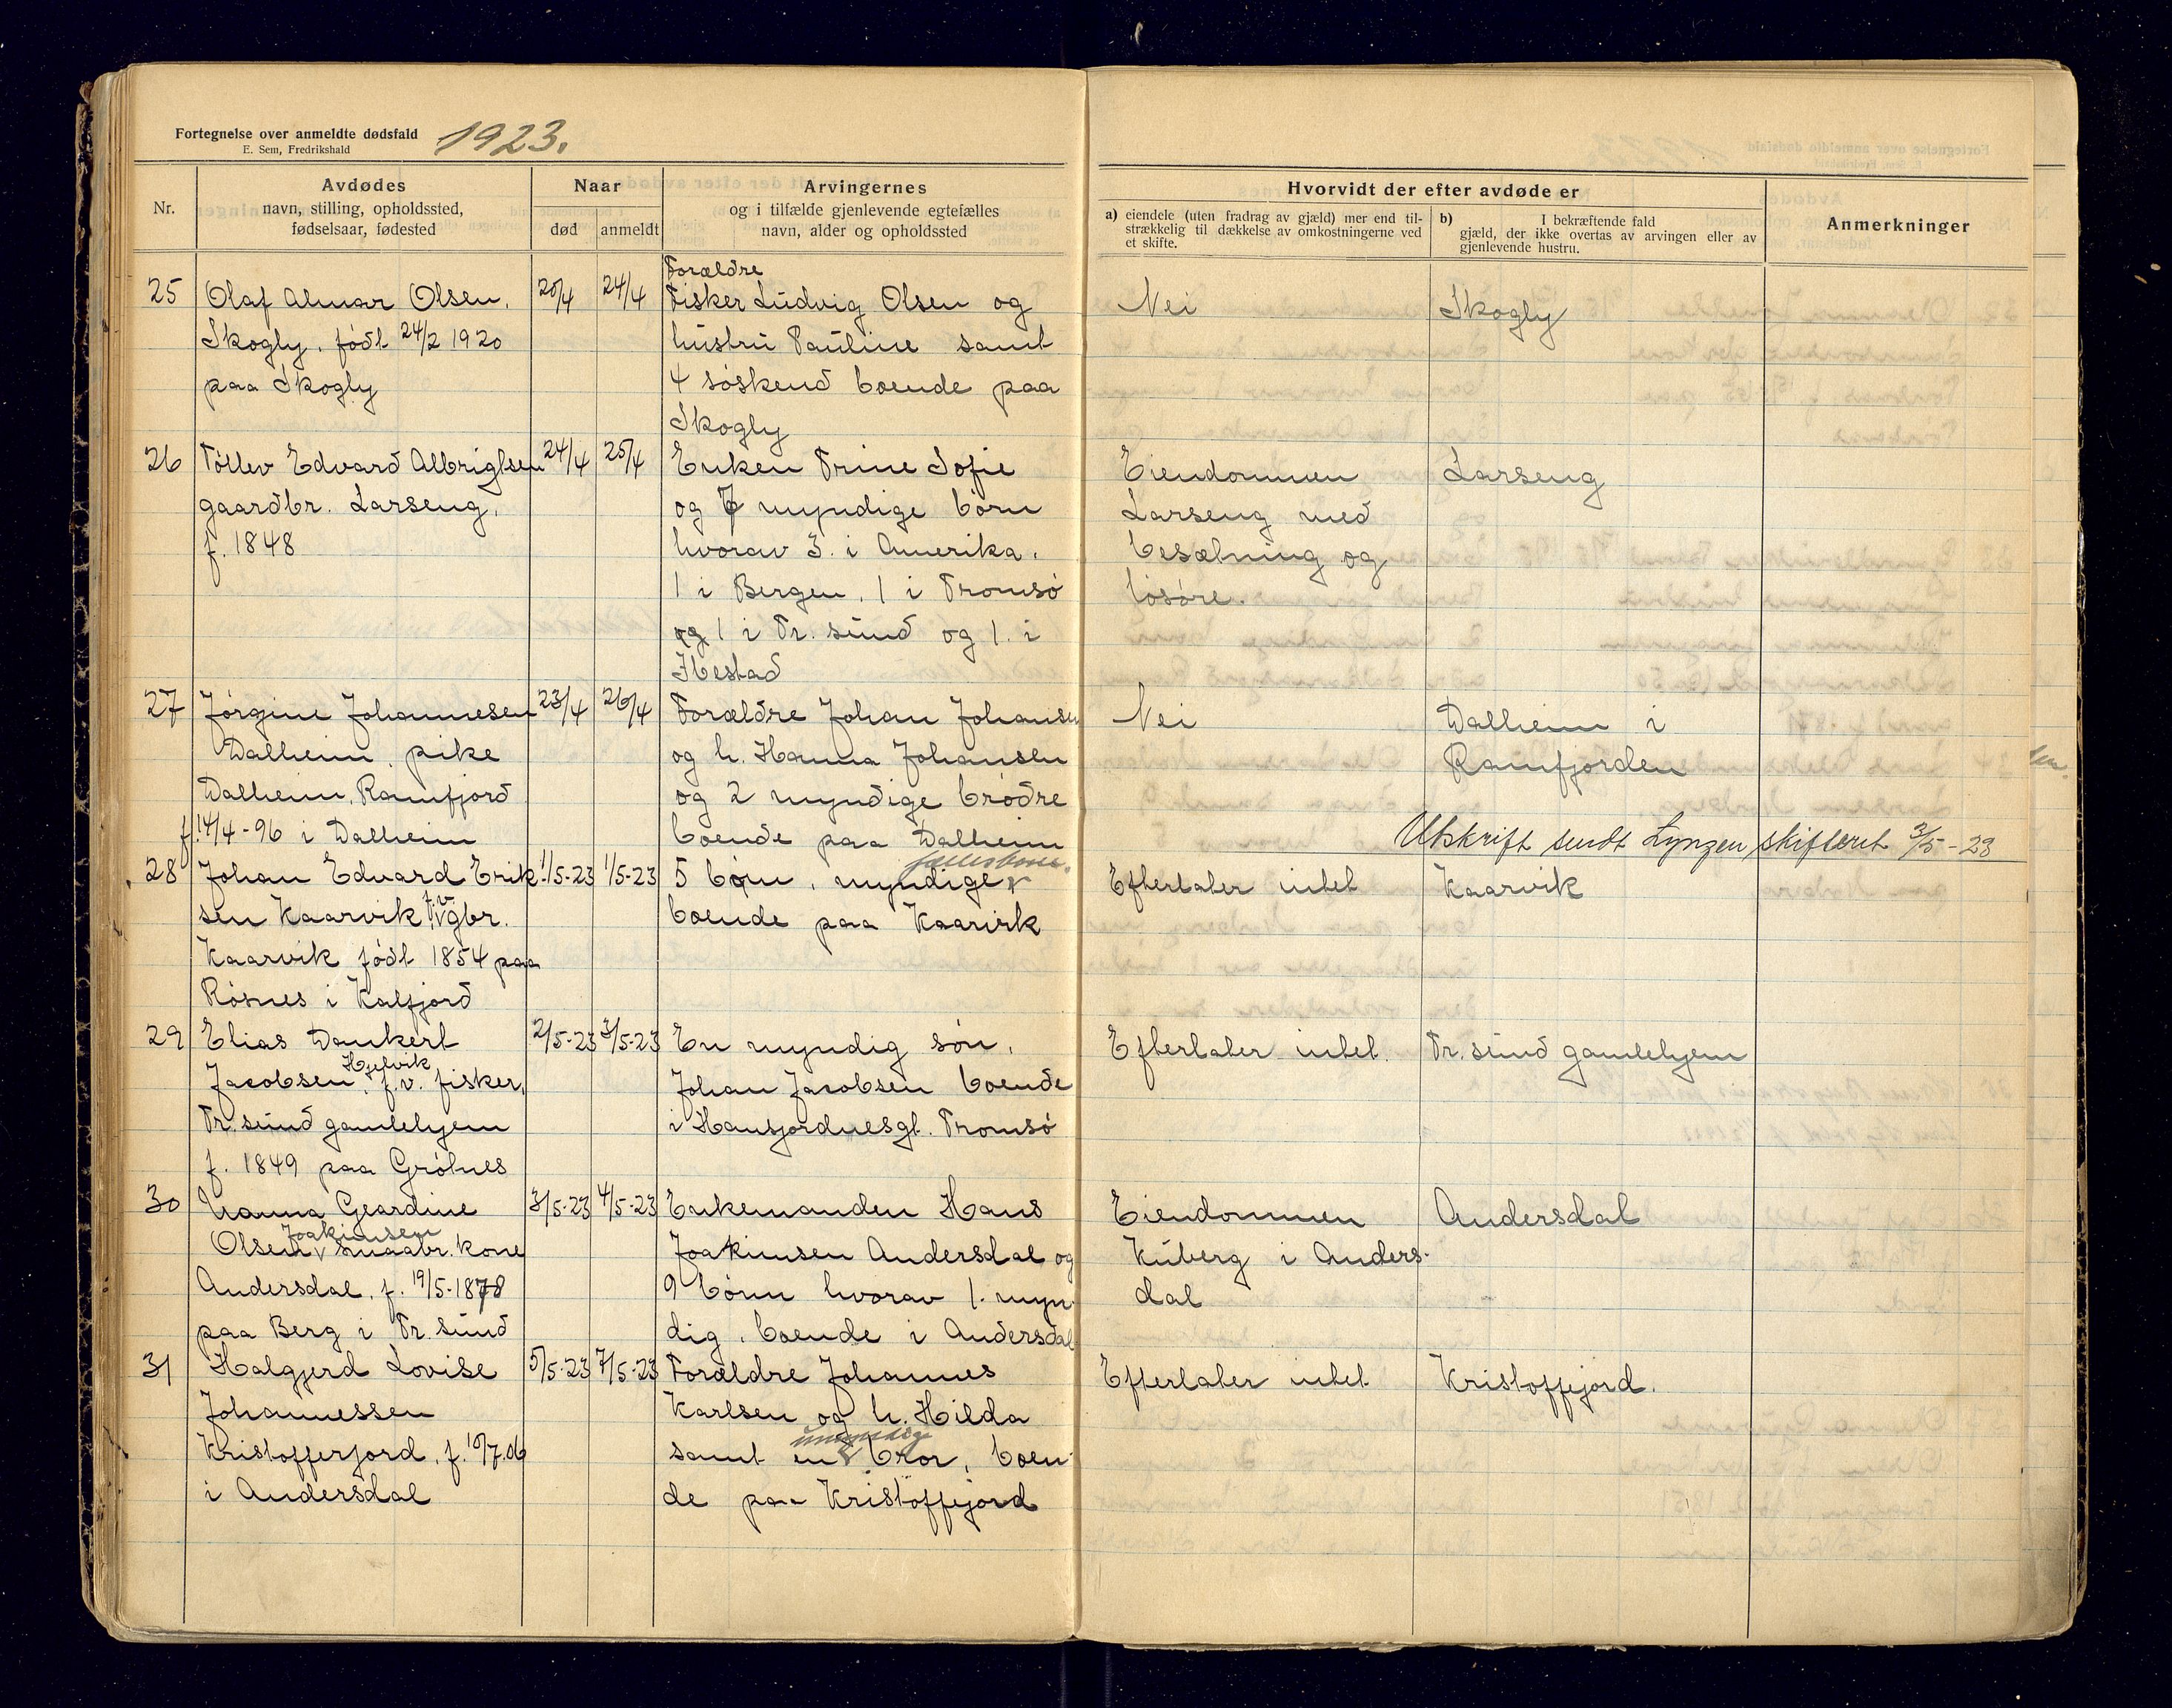 Fortegnelse over anmeldte dødsfald
E. Sem, Fredrikshald
1923.
Nr.
Avdødes
navn, stilling, opholdssted,
fødselsaar, fødested
Naar
død
anmeldt
Arvingernes
og i tilfælde gjenlevende egtefælles
navn, alder og opholdssted
Hvorvidt der efter avdøde er
a) eiendele (uten fradrag av gjæld) mer end til-
strækkelig til dækkelse av omkostningerne ved
et skifte.
b) I bekræftende fald
gjæld, der ikke overtas av arvingen eller av
gjenlevende hustru.
Anmerkninger
25
Olaf Almar Olsen,
Skogly, født 24/2 1920
paa Skogly
20/4
24/4
Forældre
Fisker Ludvig Olsen og
hustru Pauline samt
4 søskend boende paa
Skogly
Nei
Skogly
26
Tollev Edvard Albrigtsen
gaardbr. Larseng,
f. 1848
24/4
25/4
Enken Trine Sofie
og 7 myndige børn
hvorav 3. i Amerika.
1 i Bergen, 1 i Tromsø
og 1 i Tr. sund og 1. i
Ibestad
Eiendommen
Larseng med
besætning og
løsøre.
Larseng
27
Jørgine Johannesen
Dalheim, pike
Dalheim, Ramfjord
f. 14/4-96 i Dalheim
23/4
26/4
Forældre Johan Johansen
og h. Hanna Johansen
og 2 myndige brødre
boende paa Dalheim
Nei
Dalheim i
Ramfjorden
Utskrift sendt Lyngen skifteret 3/5-23
28
Johan Edvard Erik-
sen Kaarvik, f.v. gbr.
Kaarvik født 1854 paa
Røsnes i Kalfjord
1/5-23
1/5-23
fællesbarn.
5 børn, myndige
boende paa Kaarvik
Efterlater intet
Kaarvik
29
Elias Dankert
Hjelvik
Jacobsen, f.v. fisker,
Tr. sund gamlehjem
f. 1849 paa Grøtnes
2/5-23
3/5-23
En myndig søn,
Johan Jacobsen boende
i Hansjordnesgt. Tromsø
Efterlater intet.
Tr. sund gamlehjem
30
Nanna Geardine
Joakimsen
Olsen smaabr. kone
Andersdal, f. 19/5-1878
paa Berg i Tr. sund
3/5-23
4/5-23
Enkemanden Hans
Joakimsen Andersdal og
9 børn hvorav 1. myn-
dig, boende i Andersdal
Eiendommen
Kuberg i Anders-
dal
Andersdal
31
Halgjerd Lovise
Johannessen
Kristofferjord, f. 10/7.06
i Andersdal
5/5-23
7/5-23
Forældre Johannes
Karlsen og h. Hilda
umyndig
samt en bror, boen-
de paa Kristoffejord
Efterlater intet
Kristoffejord.